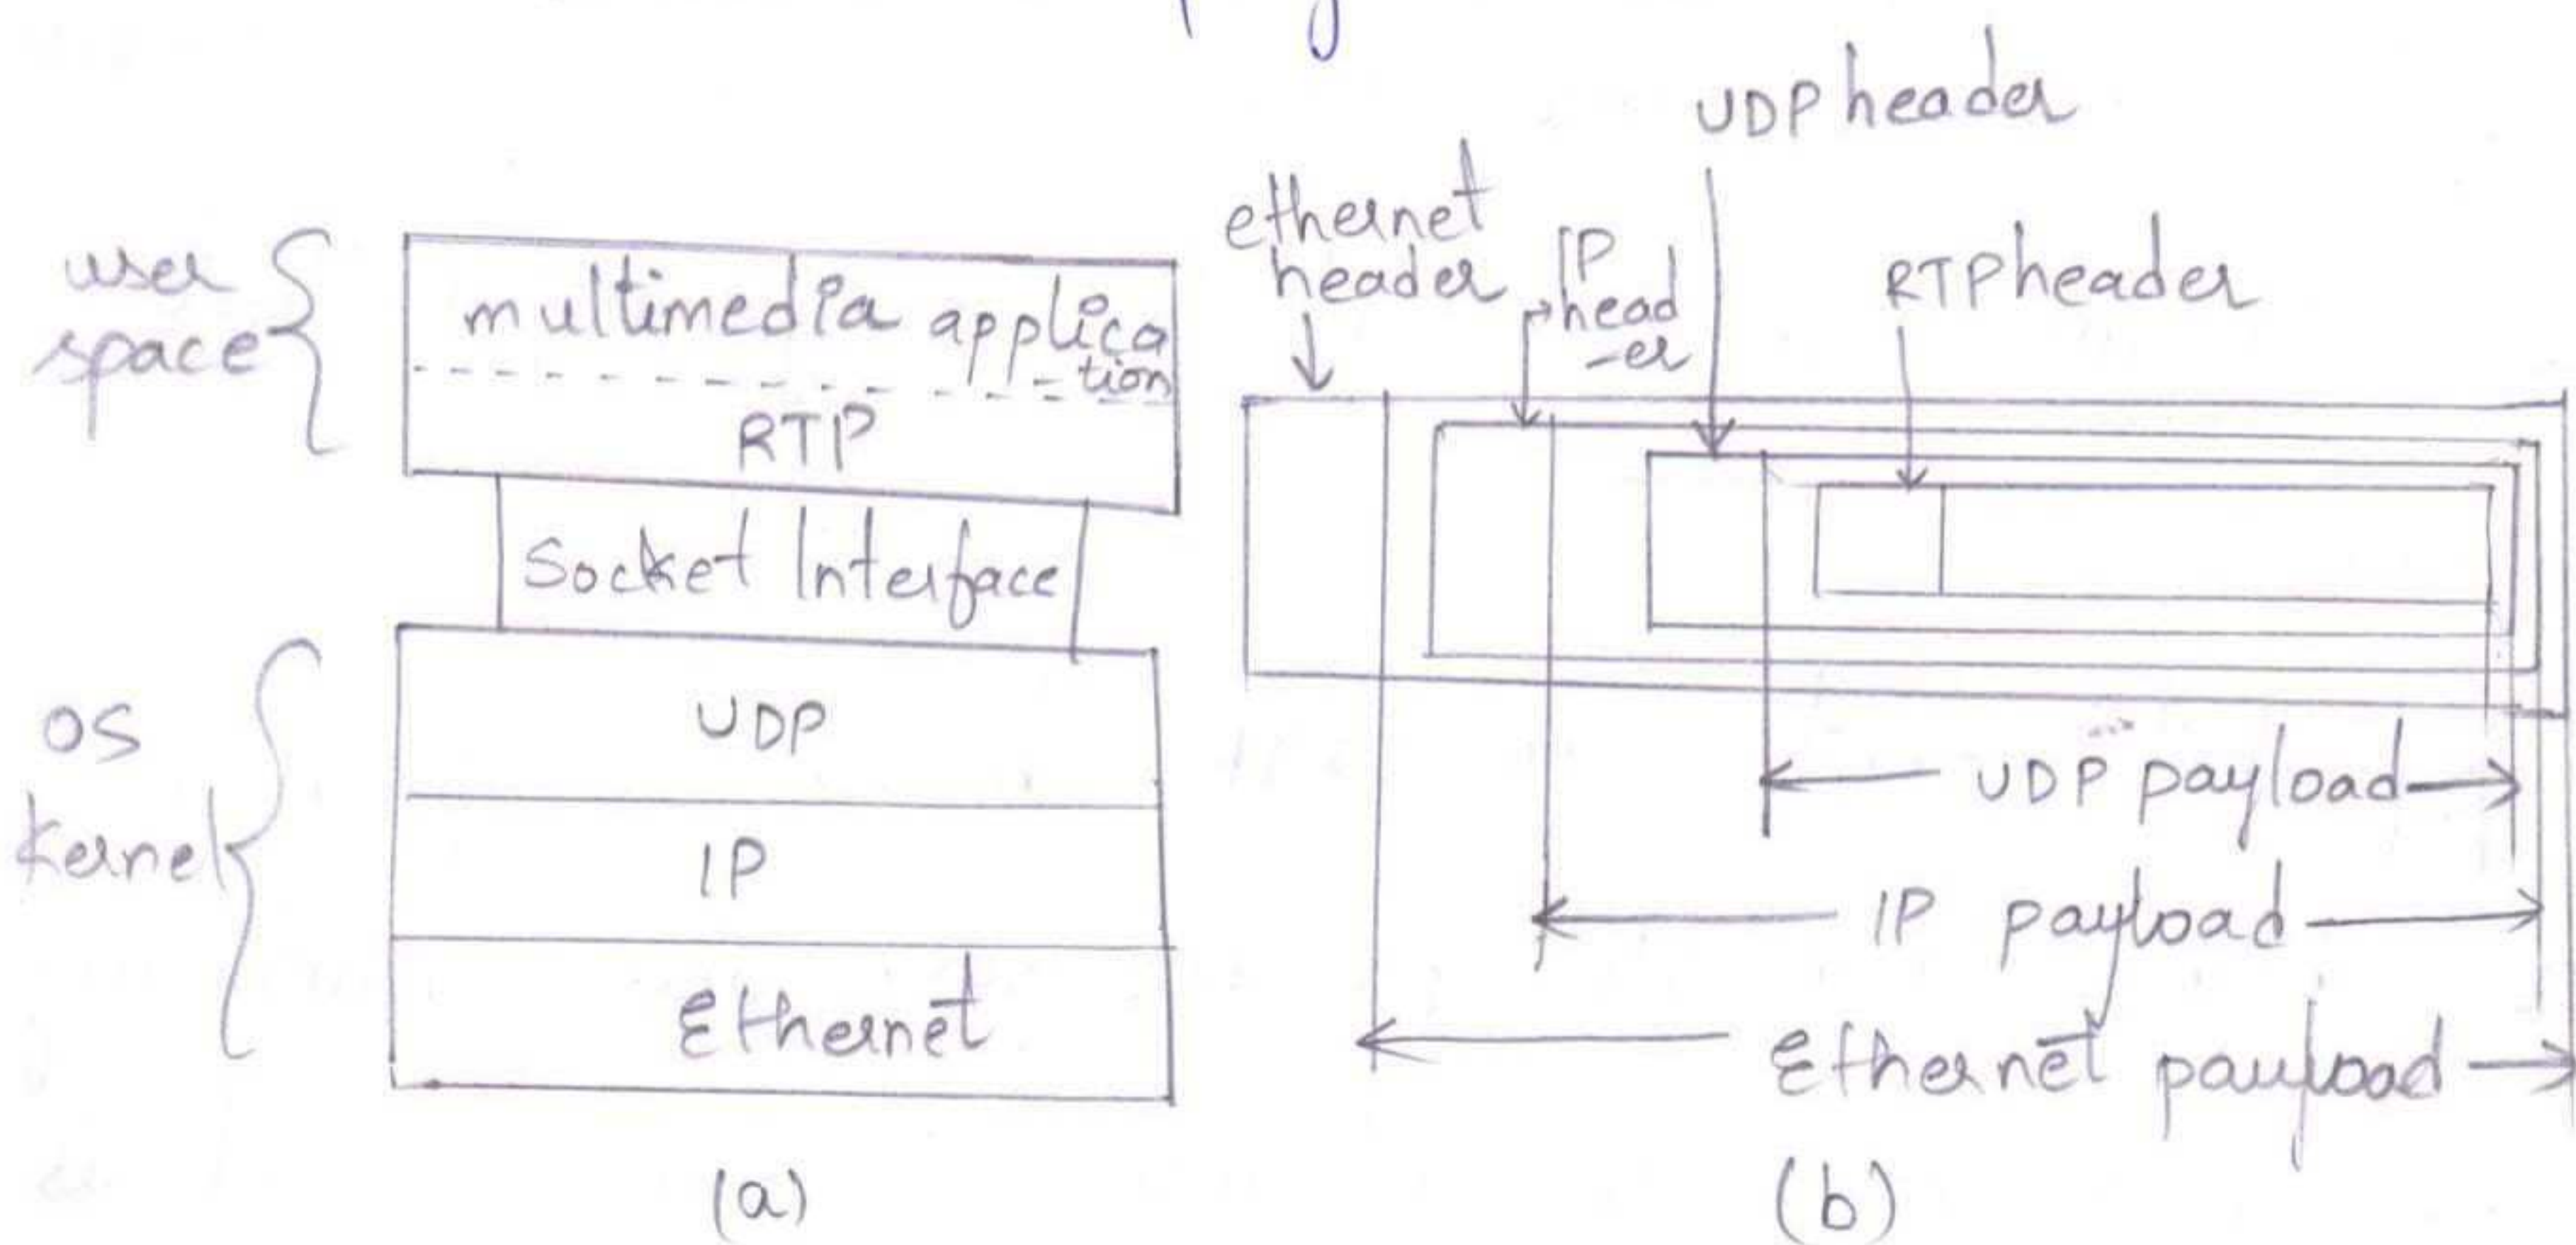 user
space
multimedia applica
tion
RTP
Socket Interface
OS
Kernel
UDP
IP
Ethernet
(a)
UDP header
ethernet
header
IP
head
-er
RTP header
UDP payload
IP payload
Ethernet payload
(b)